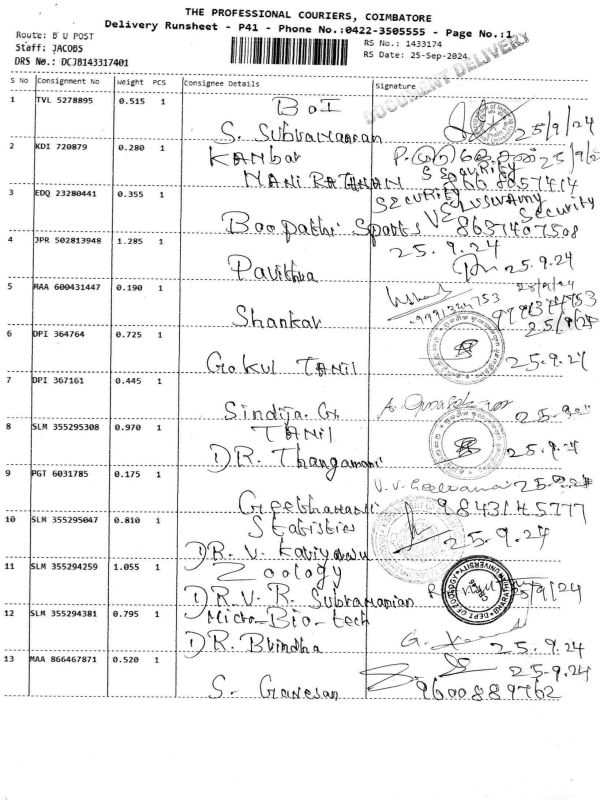 THE PROFESSIONAL COURIERS, COIMBATORE
Delivery Runsheet - P41 - Phone No.:0422-3505555 - Page No.:1
Route: B U POST
Staff: JACOBS
DRS No.: DCJB143317401
RS No.: 1433174
RS Date: 25-Sep-2024
DOCUMENT DELIVERY
S No Consignment No Weight PCS Consignee Details Signature
1 TVL 5278895 0.515 1 BoI
S. Subramanian 25/9/24
2 KDI 720879 0.280 1 Kambar
MANI RATHNAM SECURITY
3 EDQ 23280441 0.355 1 SECURITY
Boopathi Sports Security
8637407508
4 JPR 502813948 1.285 1 25.9.24
Pavithra 25.9.24
5 MAA 600431447 0.190 1
Shankar 25/9/24
6 DPI 364764 0.725 1
Gokul TAMIL 25.9.24
7 DPI 367161 0.445 1
Sindija. G. 25.9.24
8 SLM 355295308 0.970 1 TAMIL
DR. Thangamani 25.9.24
9 PGT 6031785 0.175 1 25.9.24
Geetharani 9843145777
10 SLM 355295047 0.810 1 Statistics
25.9.24
DR. V. Kaviyarasu
11 SLM 355294259 1.055 1 Zoology
DR. V. R. Subramanian 25/9/24
DEPT OF ZOOLOGY BHARATHIAR UNIVERSITY
12 SLM 355294381 0.795 1 Micro-Bio-tech
DR. Brindha 25.9.24
13 MAA 866467871 0.520 1 25.9.24
S. Ganesan 9600889762